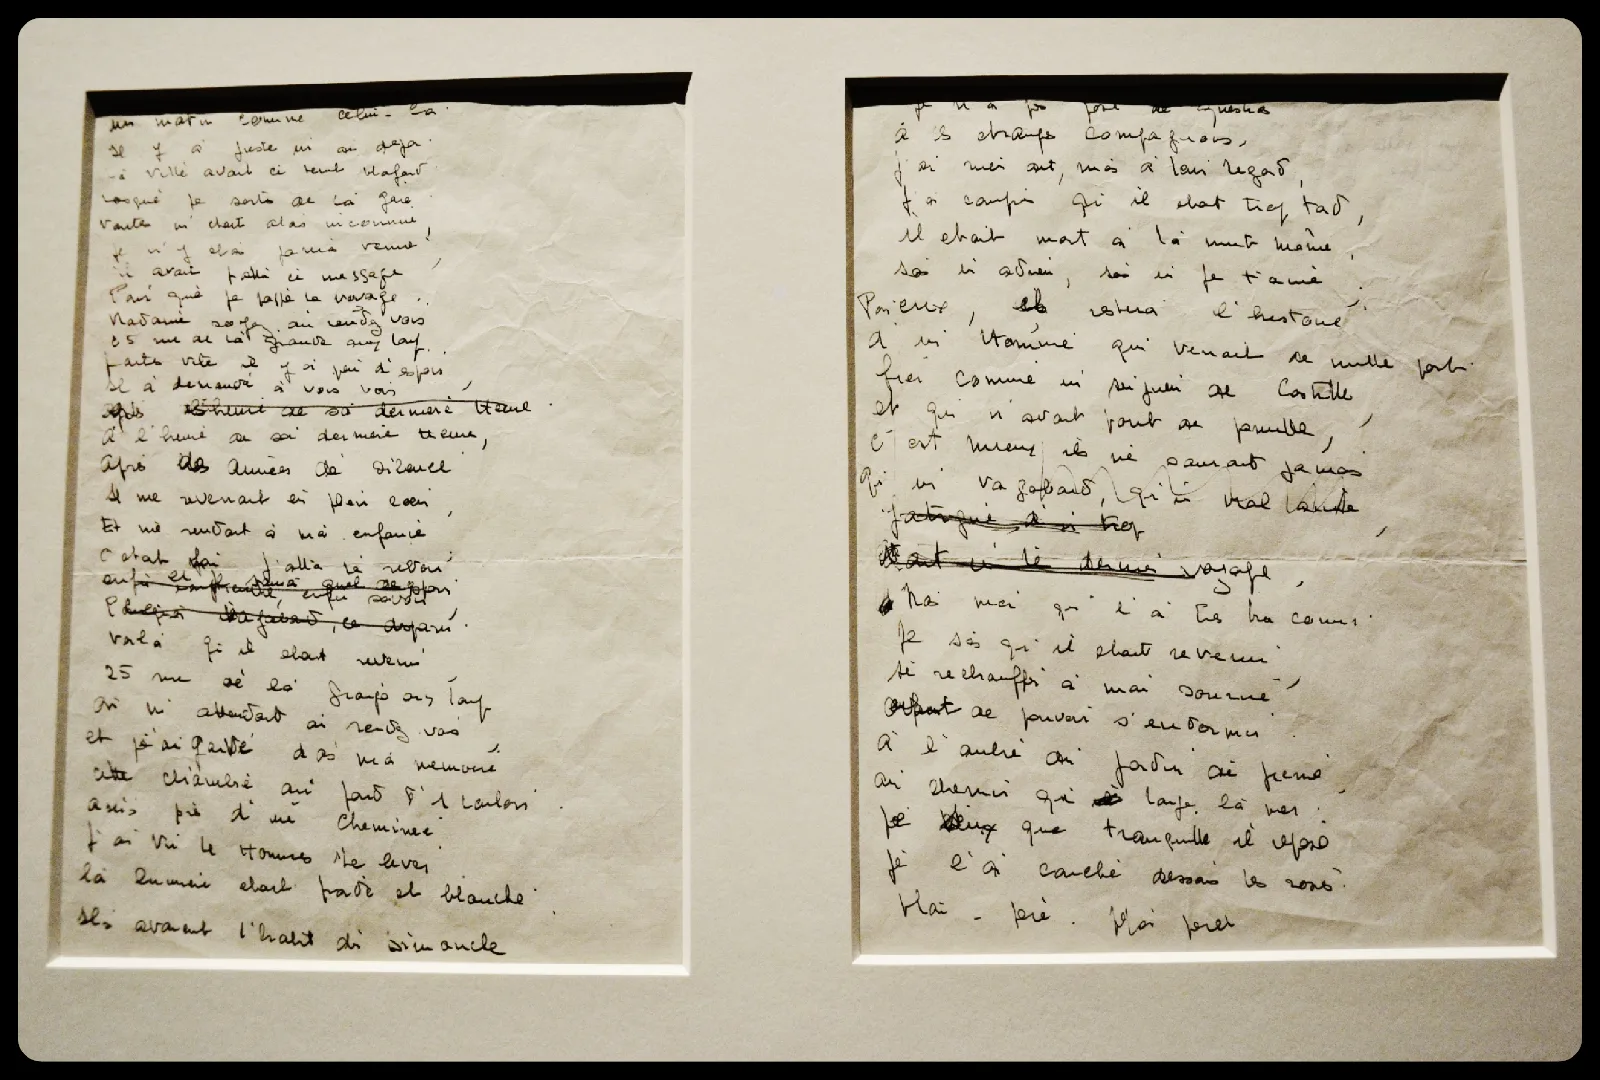 un matin comme celui-la
Il y a juste un an deja
La ville avait ce teint blafard
Lorsque je sortis de la gare
Nantes m'etait alors inconnue,
je n'y etais jamais venue
il avait fallu ce message
Pour que je fasse le voyage
Madame soyez au rendez vous
25 rue de la grange aux loup
faites vite il y a peu d'espoir
Il a demandé à vous voir
l'heure de sa derniere Heure
à l'heure de sa derniere heure,
après des années de silence
Il me revenait en plein coeur,
Et me rendait à mon enfance
voilà qu'il etait revenu
25 rue de la grange aux loup
on m'attendait au rendez vous
et j'ai gardé dans ma memoire
cette chambre au fond d'1 couloir
assis près d'une cheminée
J'ai vu 4 Hommes se lever
la lumiere etait froide et blanche
Ils avaient l'habit du dimanche
je n'ai pas posé de questions
à ces etranges compagnons,
j'ai rien dit, mais à leur regard,
J'ai compris qu'il etait trop tard,
Il etait mort à la nuit même,
sans un adieu, sans un je t'aime
restera l'histoire
d'un Homme qui venait de nulle part
fier comme un seigneur de Castille
et qui n'avait point de famille,
c'est mieux, ils ne sauront jamais
qu'un vagabond, qu'un mal
fatigué
le dernier voyage,
Mais moi qui l'ai très bien connu
Je sais qu'il etait revenu
se rechauffer à mon sourire
avant de pouvoir s'endormir
à l'ombre du jardin de pierre
au chemin qui longe la mer
je veux que tranquille il repose
je l'ai couché dessous les roses
Mon-père. Mon père